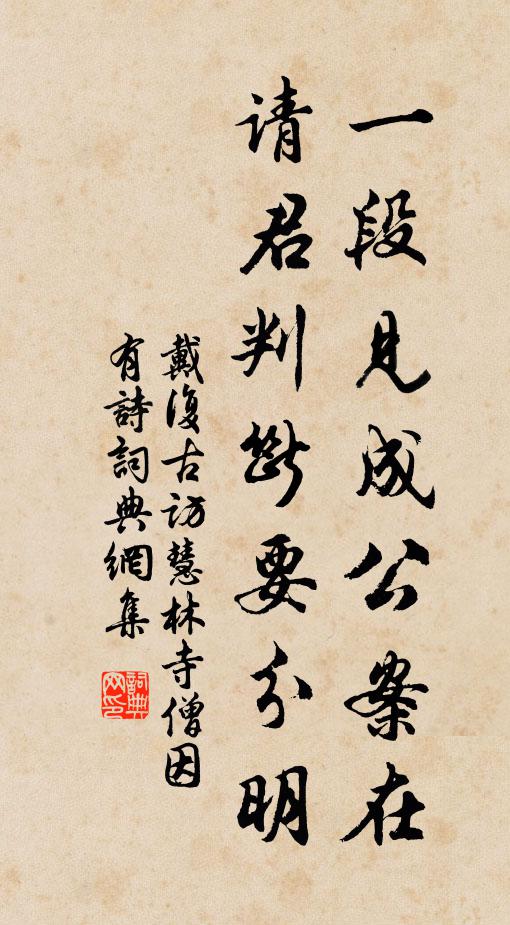 一段見成公案在
请君判斷要分明
戴復古訪慧林寺僧因
有詩詞典網集
詞典
網印